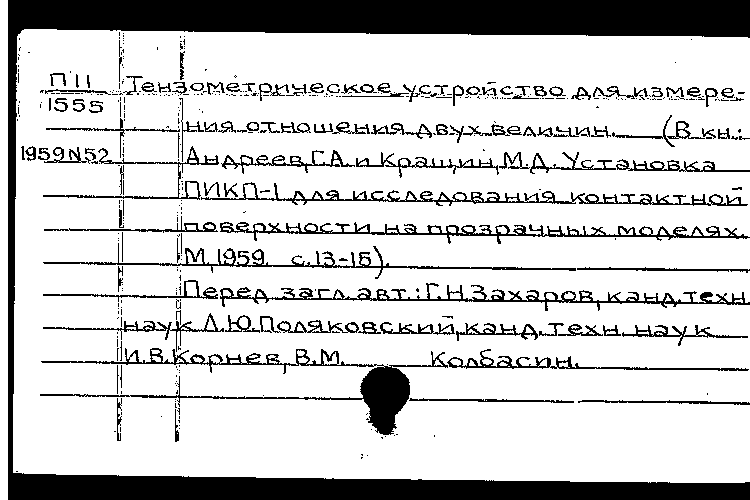 П 11
1555
1959 N52
Тензометрическое устройство для измере-
ния отношения двух величин. (В кн.:
Андреев, Г.А. и Кращин, М.Д. Установка
ПИКП-1 для исследования контактной
поверхности на прозрачных моделях.
М, 1959. с.13-15).
Перед загл. авт.: Г.Н.Захаров, канд. техн.
наук Л.Ю.Поляковский, канд. техн. наук
И.В.Корнев, В.М. Колбасин.